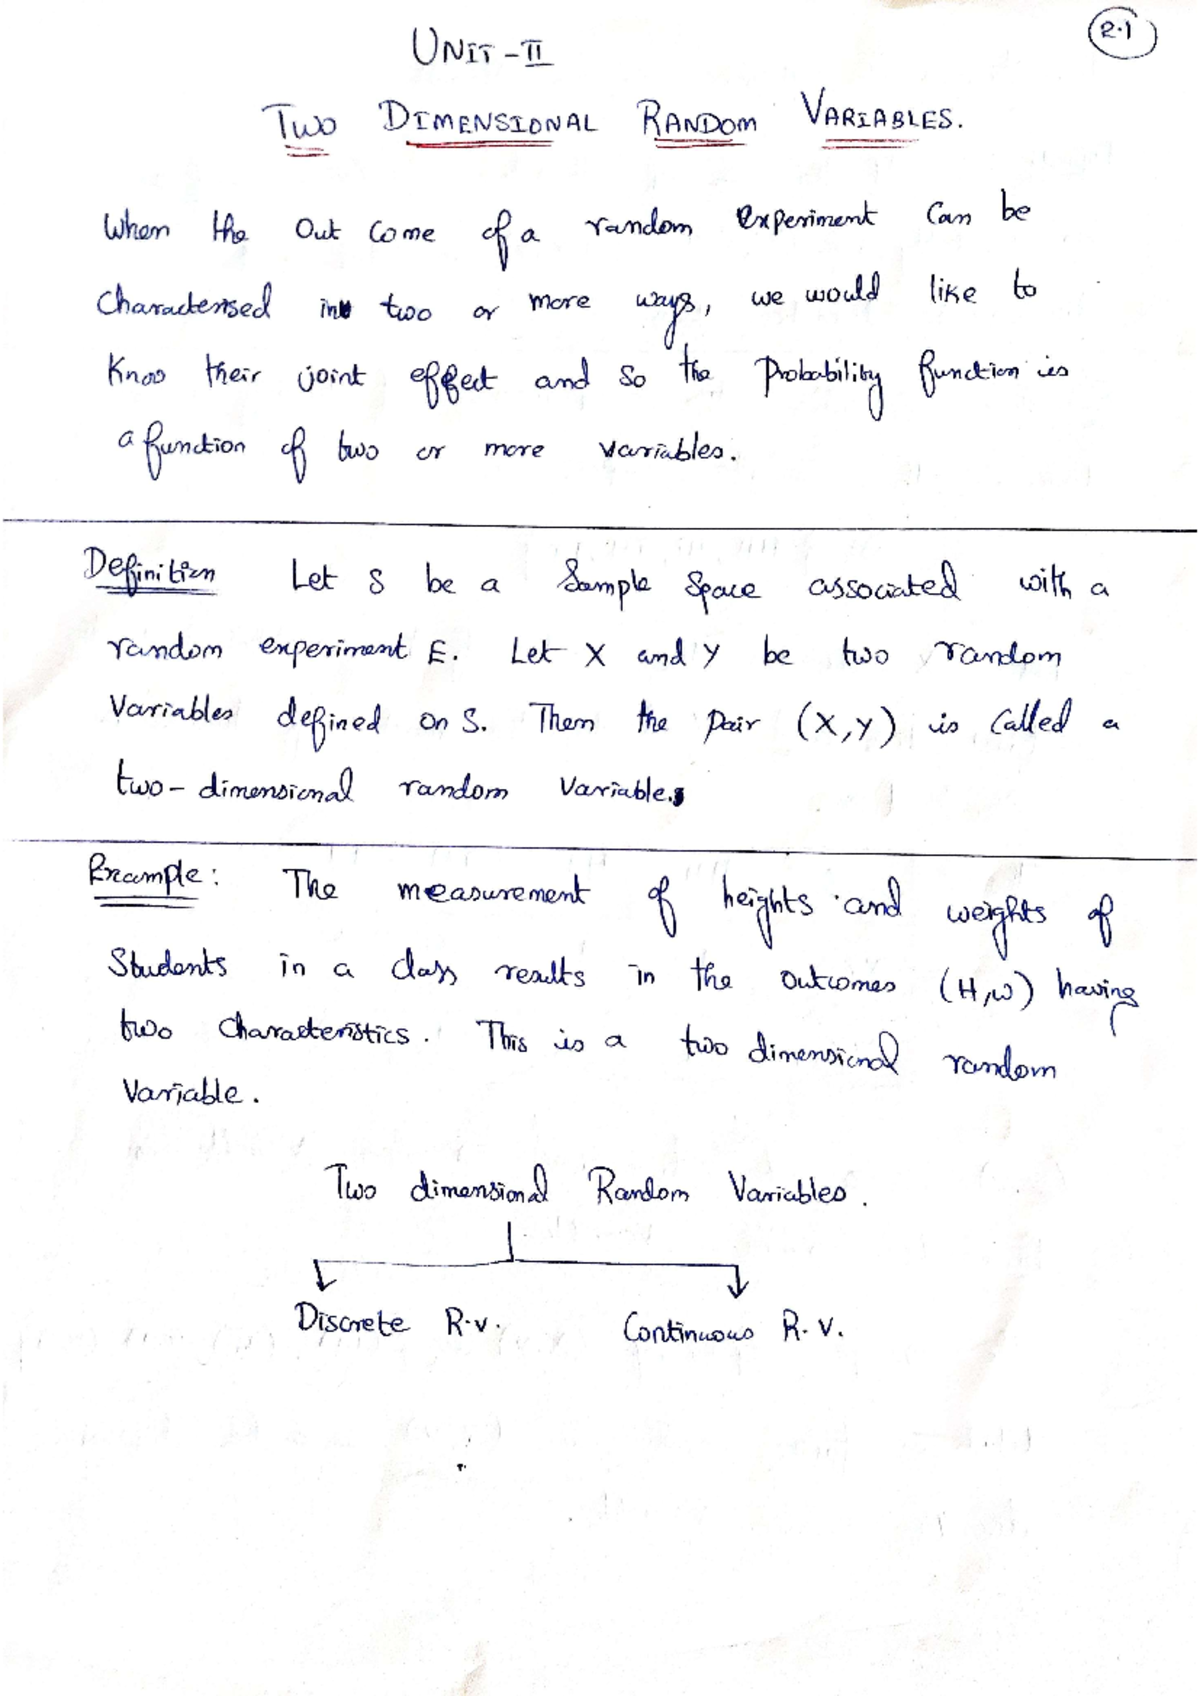 2.1
UNIT-II
TWO DIMENSIONAL RANDOM VARIABLES.
When the Out Come of a random Experiment Can be
Characterised in two or more ways, we would like to
Know their joint effect and so the Probability function is
a function of two or more variables.
Definition Let S be a Sample Space associated with a
random experiment E. Let X and Y be two random
Variables defined on S. Then the Pair (X,Y) is Called a
two-dimensional random Variable.
Example: The measurement of heights and weights of
Students in a class results in the outcomes (H,W) having
two Characteristics. This is a two dimensional random
Variable.
Two dimensional Random Variables.
Discrete R.v. Continuous R.V.